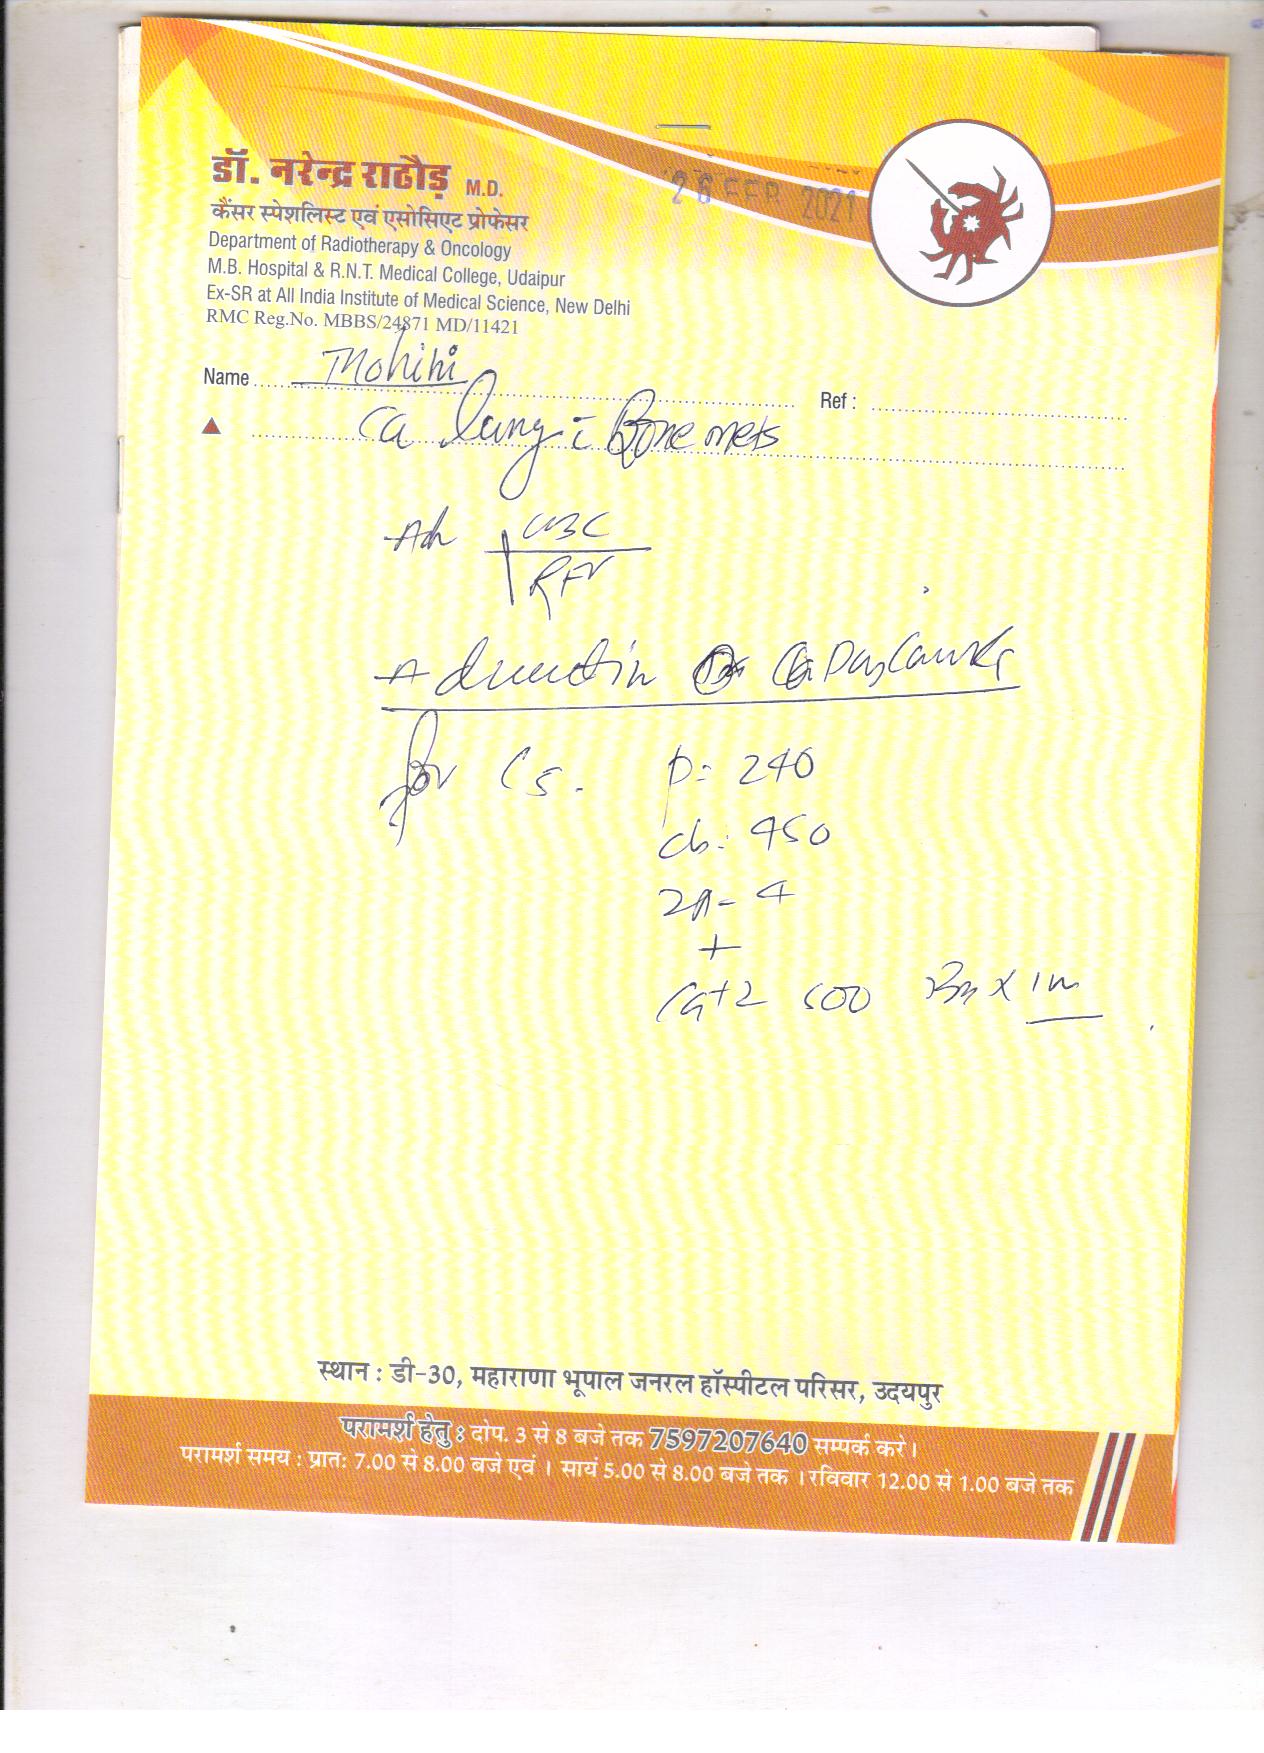 26 FEB 2021
डॉ. नरेन्द्र राठौड़ M.D.
कैंसर स्पेशलिस्ट एवं एसोसिएट प्रोफेसर
Department of Radiotherapy & Oncology
M.B. Hospital & R.N.T. Medical College, Udaipur
Ex-SR at All India Institute of Medical Science, New Delhi
RMC Reg.No. MBBS/24871 MD/11421
Name Mohini
Ref :
Ca lung c̄ Bone mets
Adv CBC
RFT
for p= 240
cb: 450
- 4
+
Ca+2 500 x 1m
स्थान : डी-30, महाराणा भूपाल जनरल हॉस्पीटल परिसर, उदयपुर
परामर्श हेतु : दोप. 3 से 8 बजे तक 7597207640 सम्पर्क करे।
परामर्श समय : प्रातः 7.00 से 8.00 बजे एवं । सायं 5.00 से 8.00 बजे तक । रविवार 12.00 से 1.00 बजे तक